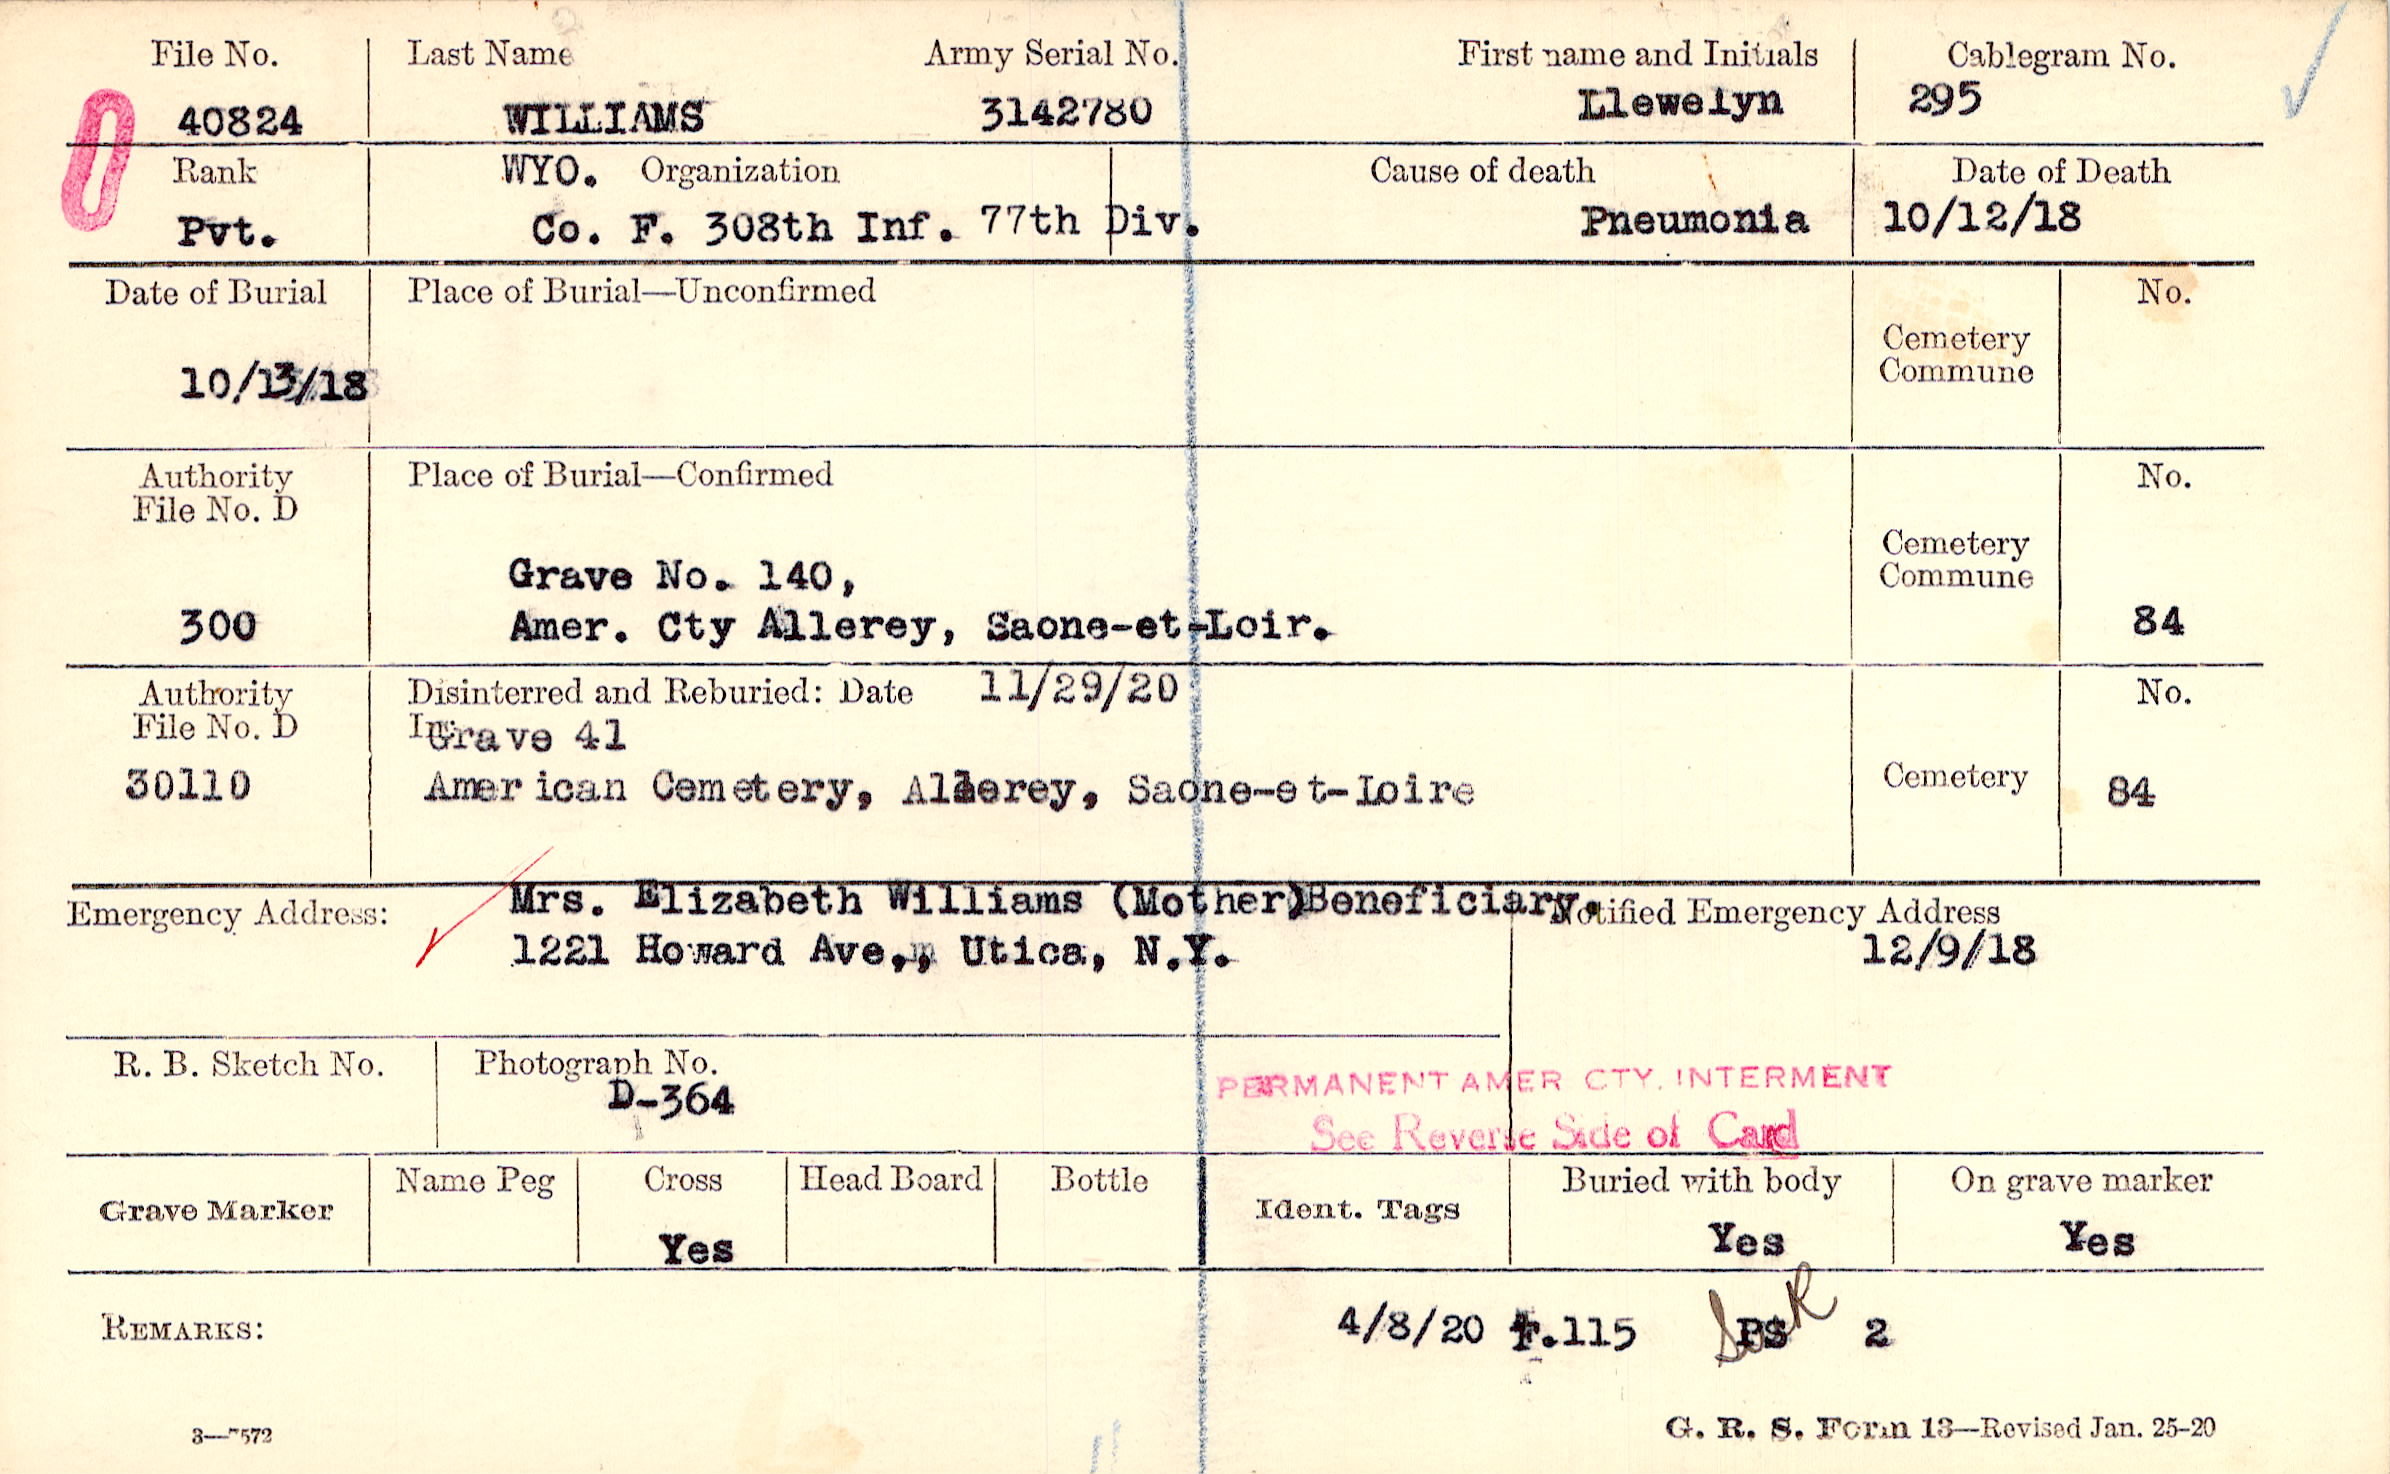 File No. Last Name Army Serial No. First name and Initials Cablegram No.
40824 WILLIAMS 3142780 Llewelyn 295
Rank WYO. Organization Cause of death Date of Death
Pvt. Co. F. 308th Inf. 77th Div. Pneumonia 10/12/18
Date of Burial Place of Burial—Unconfirmed No.
Cemetery
Commune
10/13/18
Authority Place of Burial—Confirmed No.
File No. D
Cemetery
Grave No. 140, Commune
300 Amer. Cty Allerey, Saone-et-Loir. 84
Authority Disinterred and Reburied: Date 11/29/20 No.
File No. D In Grave 41
30110 American Cemetery, Allerey, Saone-et-Loire Cemetery 84
Emergency Address: Mrs. Elizabeth Williams (Mother)Beneficiary. Notified Emergency Address
1221 Howard Ave,, Utica, N.Y. 12/9/18
R. B. Sketch No. Photograph No.
D-364
PERMANENT AMER CTY. INTERMENT
See Reverse Side of Card
Grave Marker Name Peg Cross Head Board Bottle Ident. Tags Buried with body On grave marker
Yes Yes Yes
REMARKS: 4/8/20 F.115 PS 2
3—7572 G. R. S. Form 13—Revised Jan. 25-20